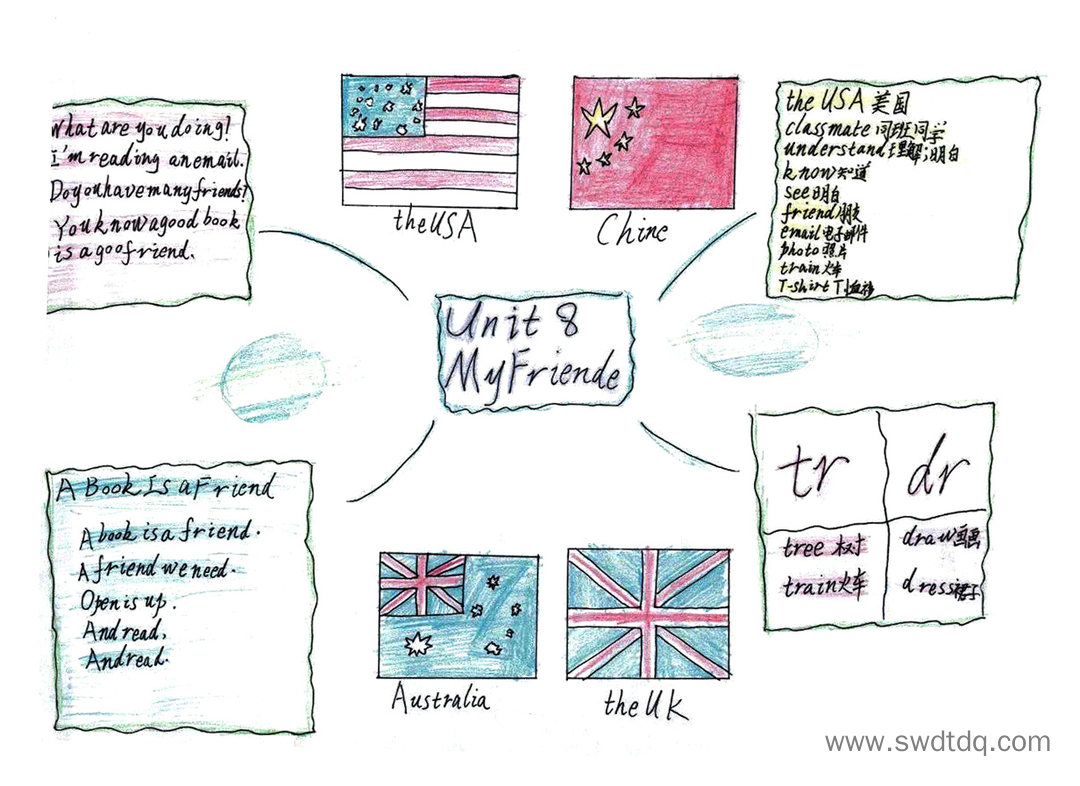 What are you doing?
I'm reading an email.
Do you have many friends?
You know a good book
is a goo friend.
the USA
Chine
the USA 美国
classmate 同班同学
understand 理解;明白
know 知道
see 明白
friend 朋友
email 电子邮件
photo 照片
train 火车
T-shirt T恤衫
Unit 8
My Friende
A Book Is a Friend
A book is a friend.
A friend we need.
Open is up.
And read,
And read.
Australia
the UK
tr dr
tree 树
train 火车
draw 画
dress 裙子
www.swdtdq.com